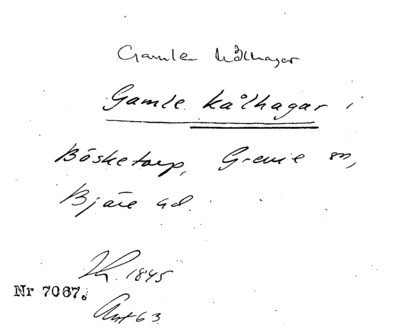 Gamle kålhagar
Gamle kålhagar i
Bösketorp, Grevie sn,
Bjäre hd.
Lh. 1845
Nr 7067.
Ant 63